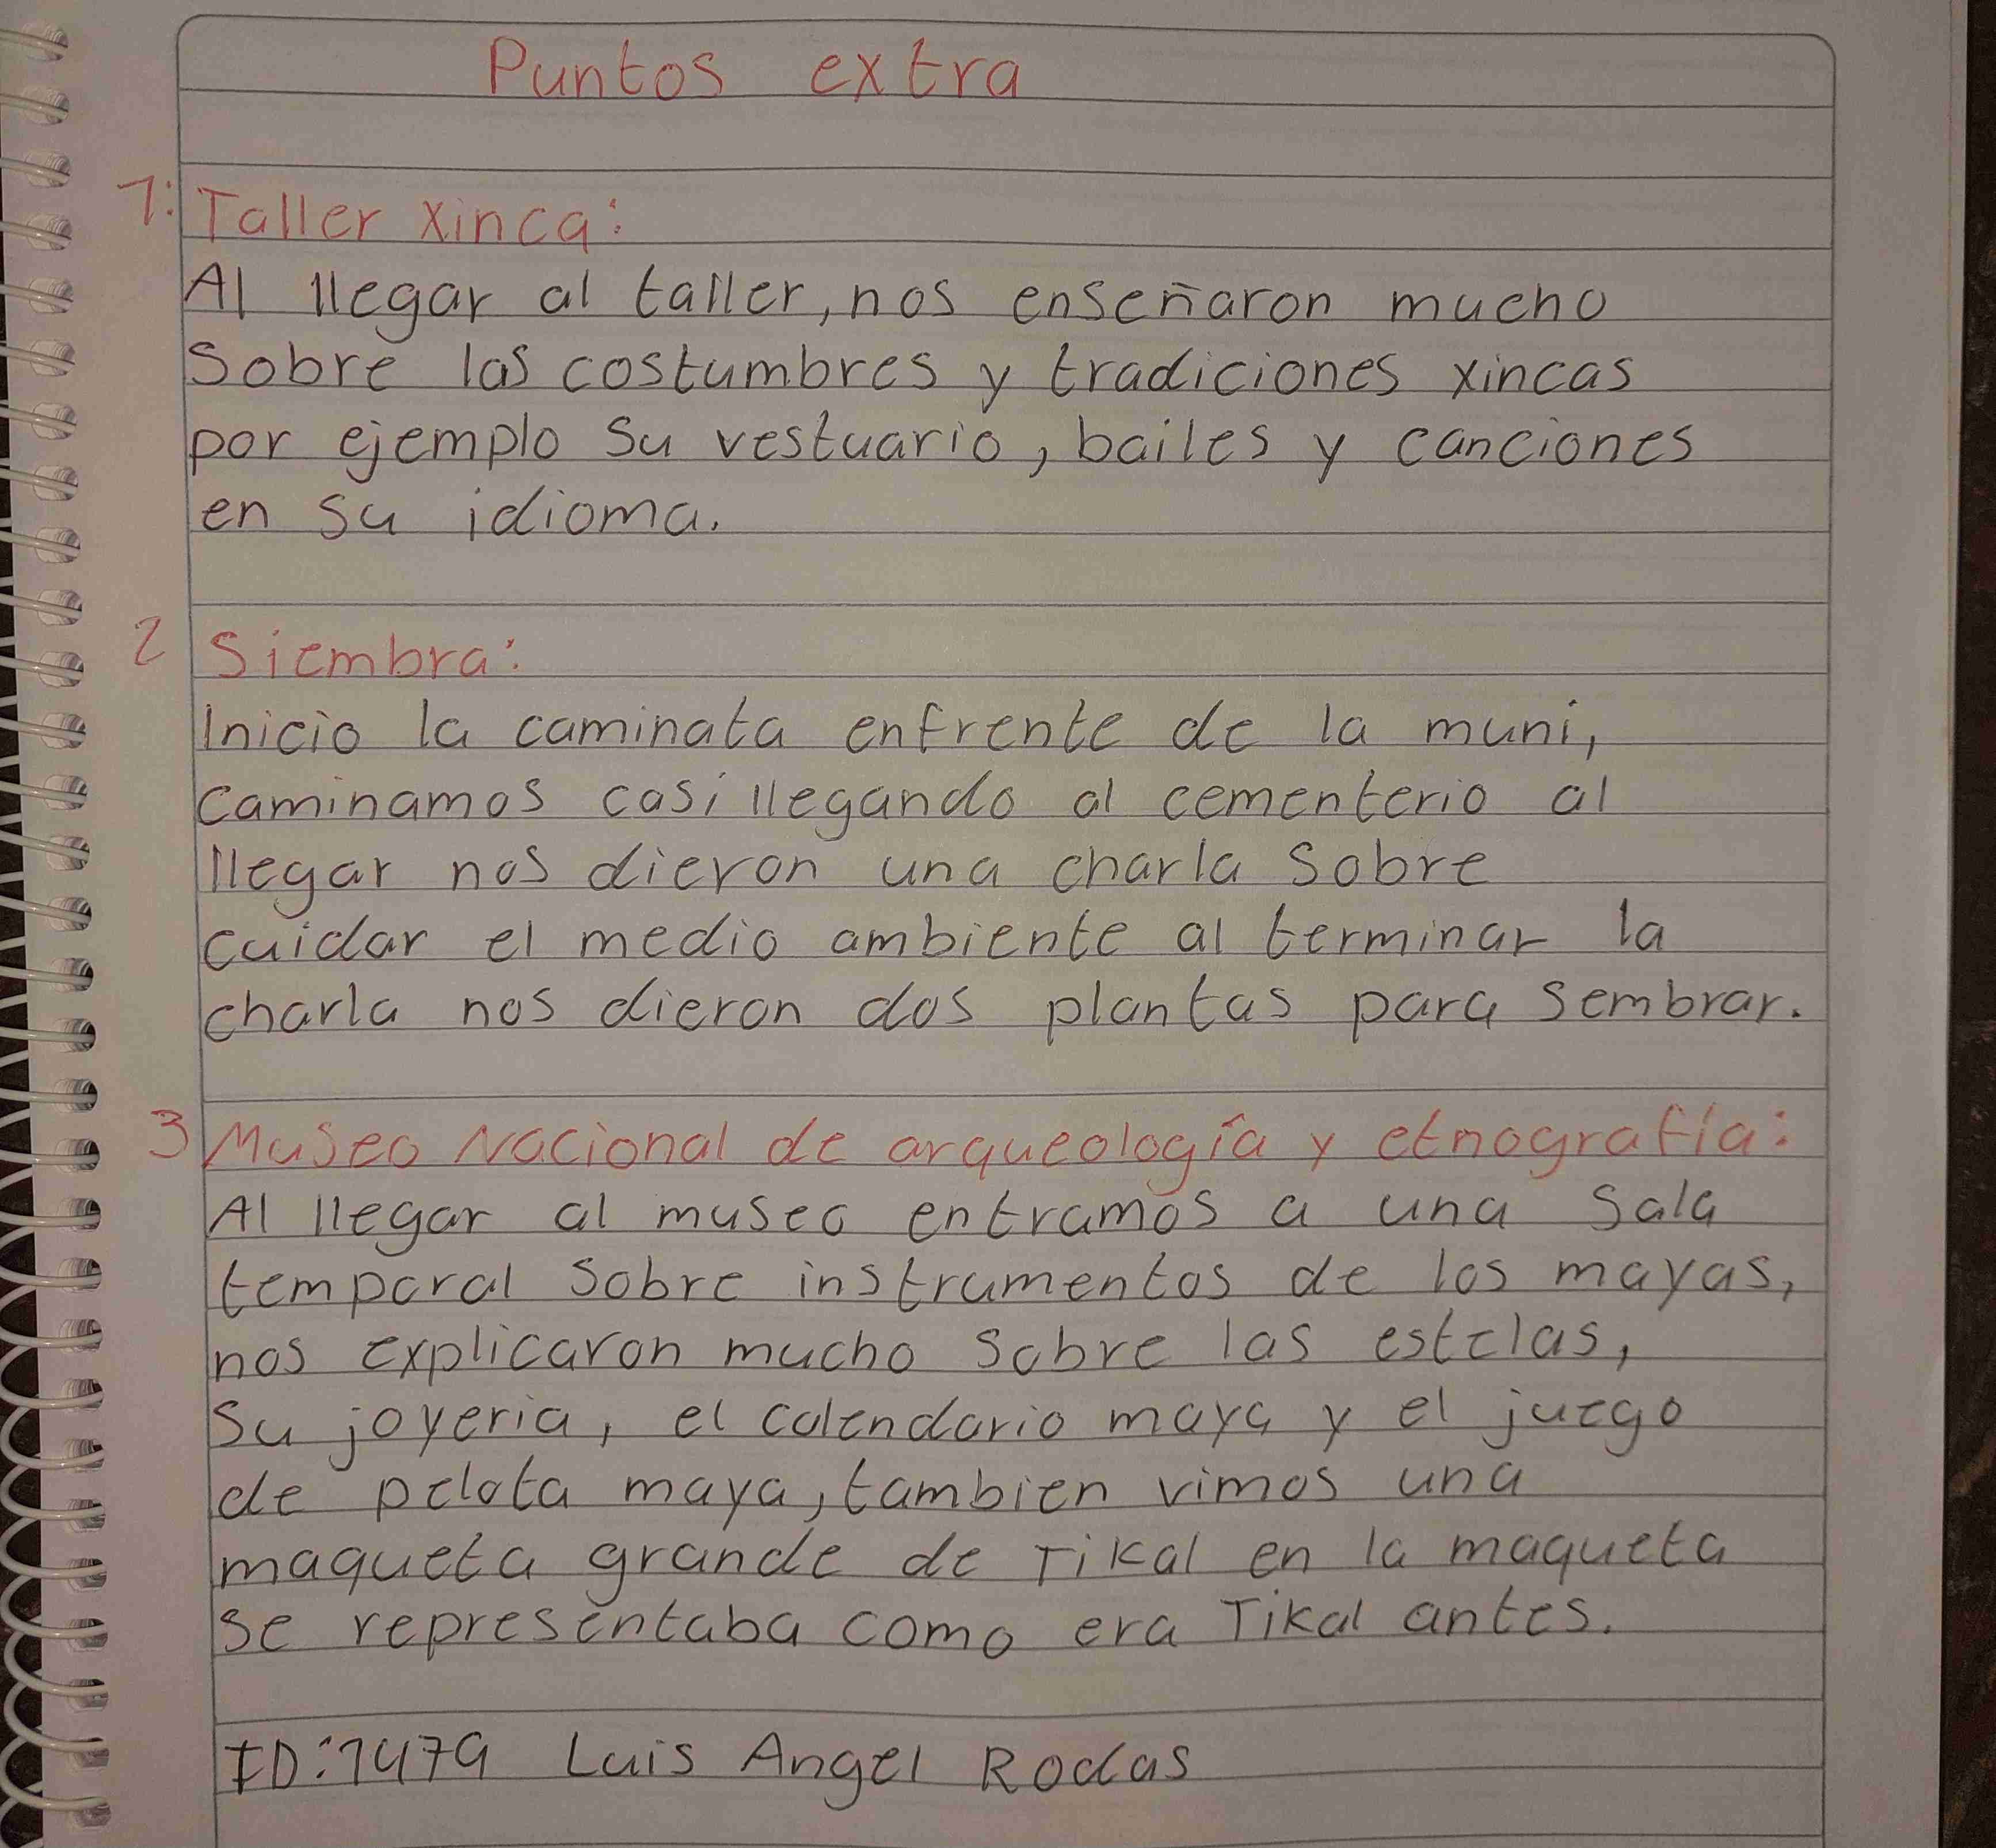 Puntos extra
1: Taller xinca:
Al llegar al taller, nos enseñaron mucho
Sobre las costumbres y tradiciones xincas
por ejemplo su vestuario, bailes y canciones
en su idioma.
2 Siembra:
Inicio la caminata enfrente de la muni,
caminamos casi llegando al cementerio al
llegar nos dieron una charla sobre
cuidar el medio ambiente al terminar la
charla nos dieron dos plantas para sembrar.
3 Museo Nacional de arqueología y etnografía:
Al llegar al museo entramos a una sala
temporal sobre instrumentos de los mayas,
nos explicaron mucho sobre las estelas,
su joyeria, el calendario maya y el juego
de pelota maya, tambien vimos una
maqueta grande de Tikal en la maqueta
se representaba como era Tikal antes.
ID: 1479 Luis Angel Rodas